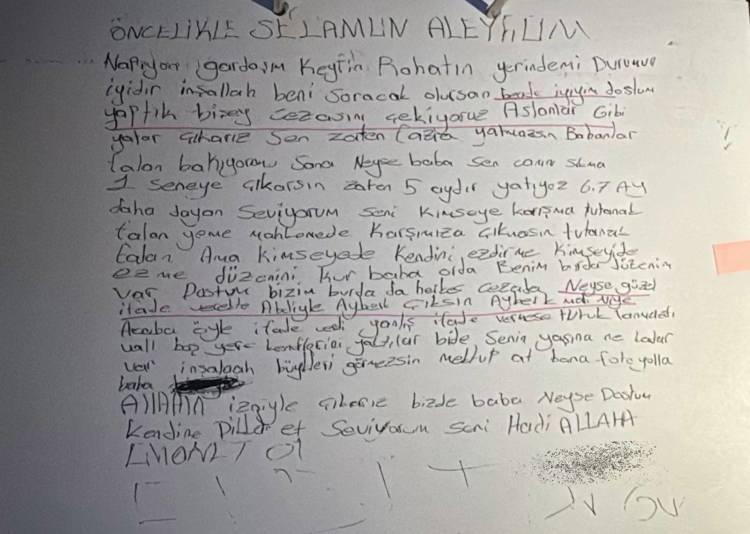 ÖNCELİKLE SELAMUN ALEYKÜM
Napıyon gardaşım Keyfin Rahatın yerindemi Durumun
iyidir inşallah beni Soracak olursan bende iyiyim dostum
yaptık bizşey cezasını çekiyoruz Aslanlar Gibi
yatar çıkarız Sen zaten fazla yatmazsın Babanlar
falan bakıyorum Sana Neyse baba sen canını sıkma
1 Seneye çıkarsın zaten 5 aydır yatıyoz 6.7 AY
daha dayan Seviyorum seni Kimseye karışma tutanak
falan yeme mahkemede Karşımıza çıkmasın tutanak
falan Ama Kimseyede Kendini ezdirme Kimseyide
ezme düzenini Kur baba orda Benim burda düzenim
var Dostum bizim burda da herkes cezada Neyse güzel
ifade verelim Ataliyle Ayberk Çıksın Ayberk niye
Acaba öyle ifade verdi yanlış ifade vermese tutuklanmazdı
vall boş yere yaktılar bide Senin yaşına ne kadar
var inşalaah büyükleri görmezsin mektup at bana foto yolla
baba
ALLAHIN izniyle çıkarız bizde baba Neyse Dostum
Kendine Dikkat et Seviyorum seni Hadi ALLAHA
EMANET Ol